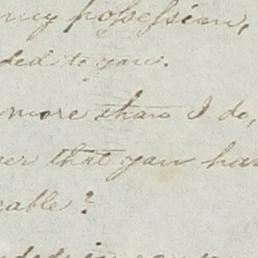 my possession,
ded to you.
more than I do,
er that you hav
cable?